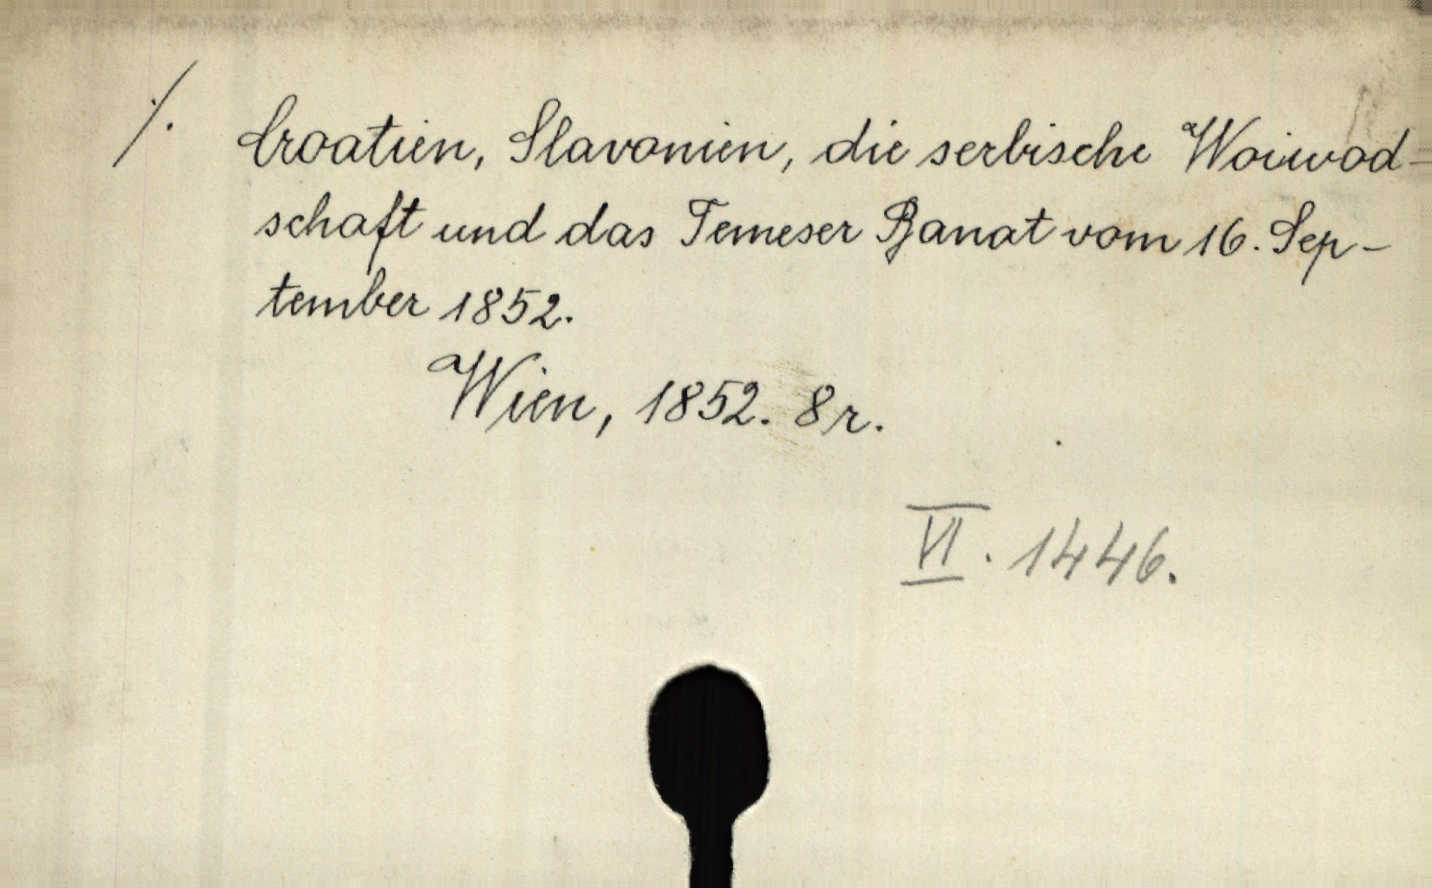 ./. Croatien, Slavonien, die serbische Woiwod-
schaft und das Temeser Banat vom 16. Sep-
tember 1852.
Wien, 1852. 8r.
VI. 1446.